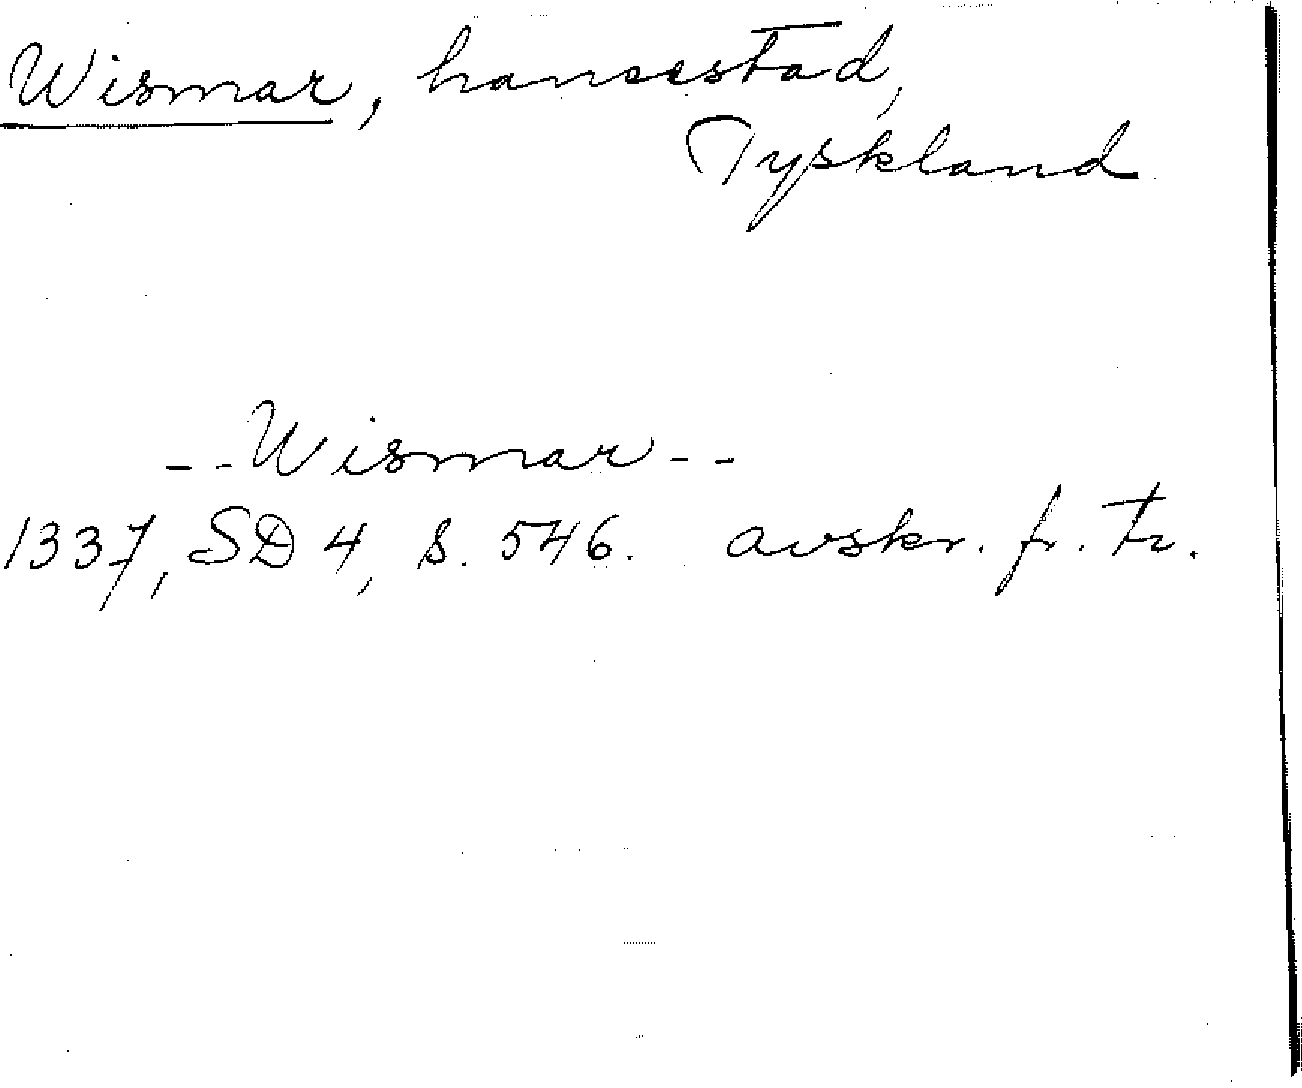 Wismar, hansestad,
Tyskland
--Wismar--
1337, SD 4, s. 546. avskr. fr. tr.